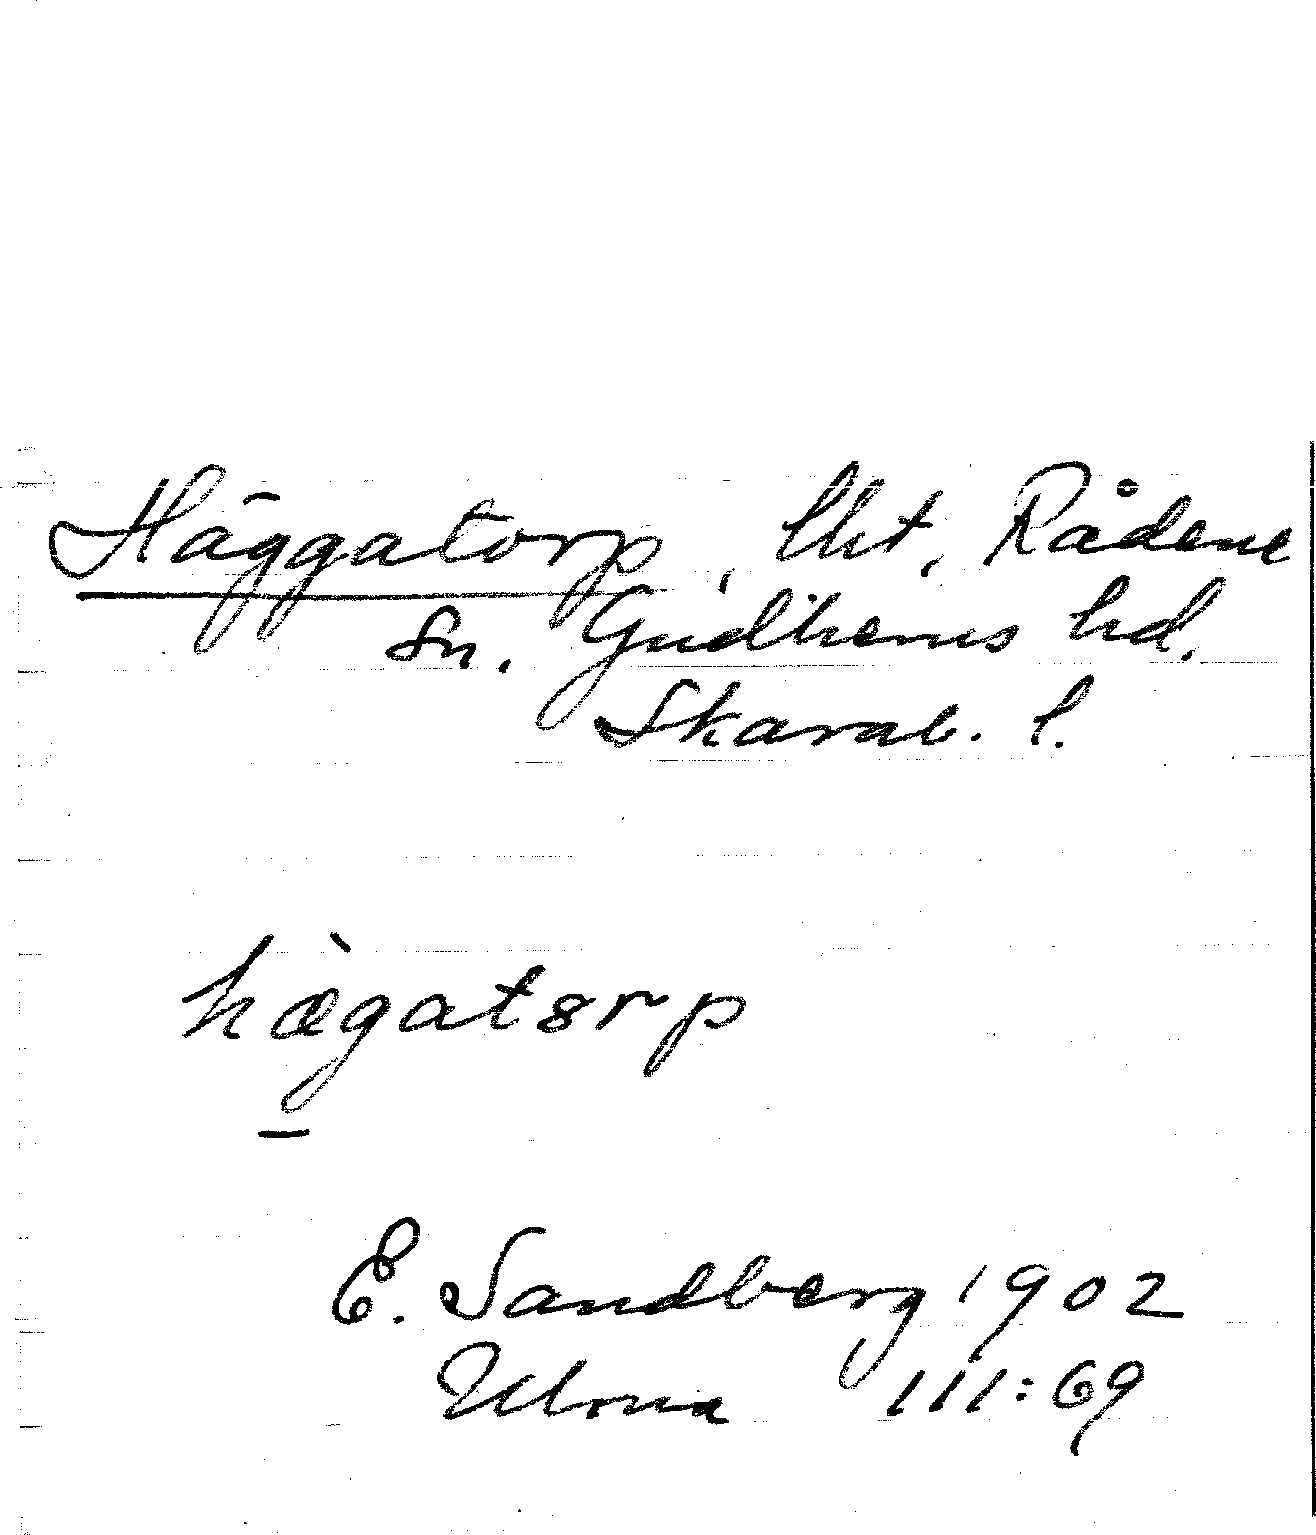 Häggatorp, lht, Rådene
Sn. Gudhems hd.
Skarab. l.
hægatorp
E. Sandberg 1902
Ulma 111:69